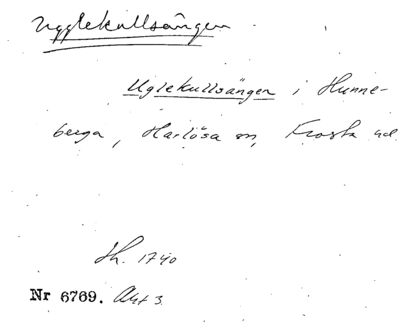 Ugglekullsängen
Uglekullsängen i Hunne-
berga, Harlösa sn, Frosta hd
Sh. 1740
Nr 6769. Akt 3.